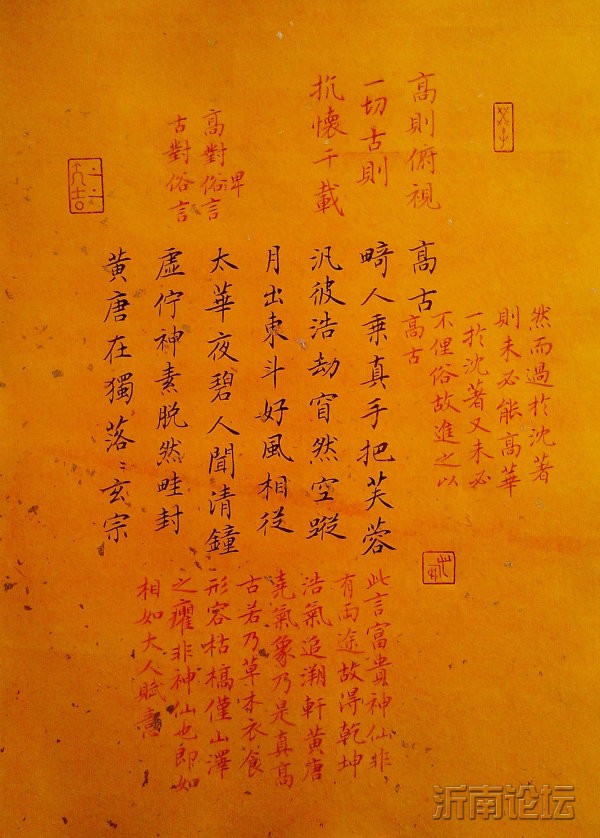 高則俯視
一切古則
抗懷千載
高對俗言
古對俗言
然而過於沈著
則未必能高華
一於沈著又未必
不俚俗故進之以
高古
高古
畸人乗真手把芙蓉
汎彼浩劫窅然空蹤
月出東斗好風相從
太華夜碧人聞清鐘
虛佇神素脫然畦封
黃唐在獨落〻玄宗
此言富貴神仙非
有兩途故得乾坤
浩氣追溯軒黃唐
堯氣象乃是真高
古若乃草木衣食
形容枯槁僅山澤
之癯非神仙也即如
相如大人賦意
沂南论坛